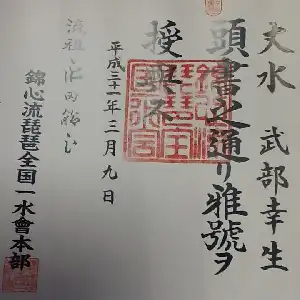 夫水 武部幸生
頭書之通リ雅號ヲ
授與ス
平成三十一年三月九日
流祖
錦心流琵琶全国一水會本部